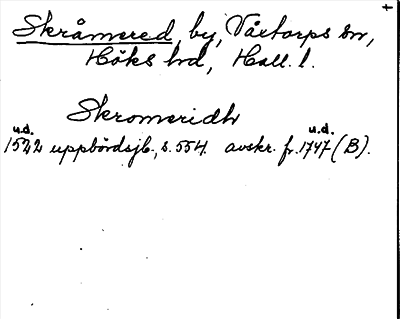 Skråmered, by, Våxtorps sn,
Höks hd, Hall. l.
Skromeridh
u.d. u.d.
1522 uppbördsjb., s. 554. avskr. fr. 1747 (B).